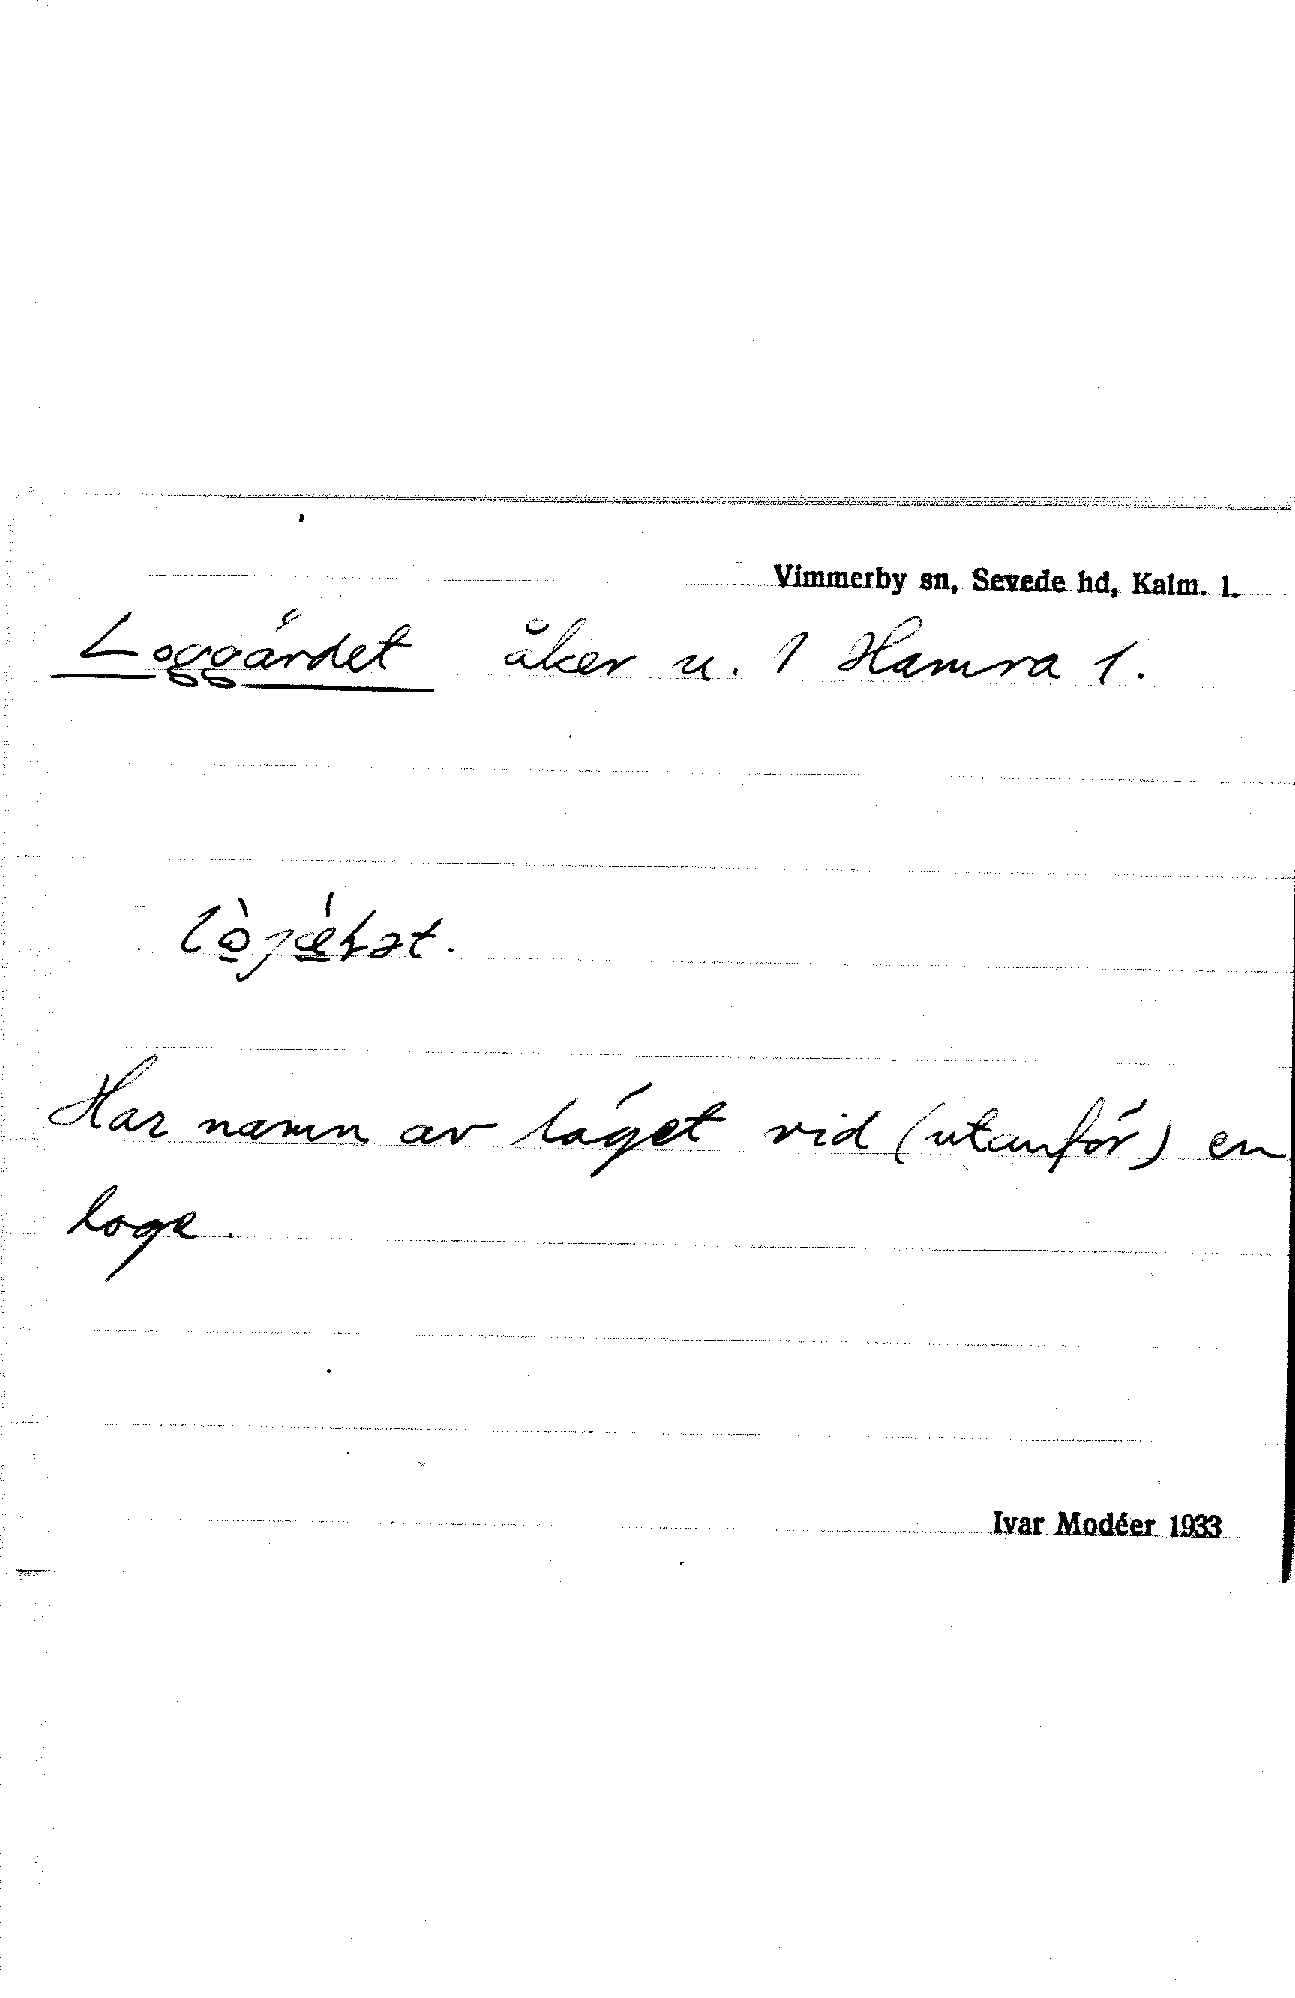 Vimmerby sn, Sevede hd, Kalm. l.
Loggärdet åker u. 1 Hamra 1.
Har namn av läget vid (utanför) en
loge.
Ivar Modéer 1933